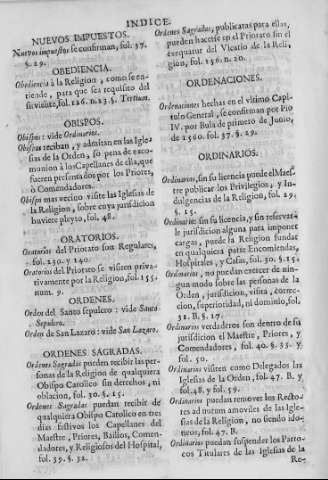 INDICE.
NUEVOS IMPUESTOS.
Nuevos impuestos se confirman, fol. 37.
§. 29.
OBEDIENCIA.
Obediencia à la Religion, como se en-
tiende, para que sea requisito del
servicio, fol. 126. n. 23. §. Tertium.
OBISPOS.
Obispos: vide Ordinarios.
Obispos reciban, y admitan en las Igle-
sias de la Orden, so pena de exco-
munion à los Capellanes de ella, que
fueren presentados por los Priores,
ò Comendadores.
Obispo mas vecino visite las Iglesias de
la Religion, sobre cuya jurisdicion
huviere pleyto, fol. 48.
ORATORIOS.
Oratorios del Priorato son Regulares,
fol. 250. y 140.
Oratorios del Priorato se visiten priva-
tivamente por la Religion, fol. 155.
num. 9.
ORDENES.
Orden del Santo sepulcro: vide Santo
Sepulcro.
Orden de San Lazaro: vide San Lazaro.
ORDENES SAGRADAS.
Ordenes Sagradas pueden recibir las per-
sonas de la Religion de qualquiera
Obispo Catolico sin derechos, ni
oblacion, fol. 30. §. 15.
Ordenes Sagradas puedan recibir de
qualquiera Obispo Catolico en tres
dias festivos los Capellanes del
Maestre, Priores, Bailios, Comen-
dadores, y Religiosos del Hospital,
fol. 39. §. 32.
Ordenes Sagradas, publicatas para ellas,
pueden hacerse en el Priorato sin el
exequatur del Vicario de la Reli-
gion, fol. 156. n. 20.
ORDENACIONES.
Ordenaciones hechas en el vltimo Capi-
tulo General, se confirman por Pio
IV. por Bula de primero de Junio,
de 1560. fol. 37. §. 29.
ORDINARIOS.
Ordinarios, sin su licencia puede el Maes-
tre publicar los Privilegios, y In-
dulgencias de la Religion, fol. 29.
§. 15.
Ordinarios: sin su licencia, y sin reservar-
le jurisdicion alguna para imponer
cargas, puede la Religion fundar
en qualquiera parte Encomiendas,
Hospitales, y Casas, fol. 30. §. 15.
Ordinarios, no puedan exercer de nin-
gun modo sobre las personas de la
Orden, jurisdicion, visita, correc-
cion, superioridad, ni dominio, fol.
31. B. §. 17.
Ordinarios verdaderos son dentro de su
jurisdicion el Maestre, Priores, y
Comendadores, fol. 40. §. 35. y
fol. 50.
Ordinarios visiten como Delegados las
Iglesias de la Orden, fol. 47. B. y
fol. 48. y fol. 59.
Ordinarios puedan remover los Recto-
res ad nutum amoviles de las Igle-
sias de la Religion, no siendo ido-
neos, fol. 47. B.
Ordinarios puedan suspender los Parro-
cos Titulares de las Iglesias de la
Re-